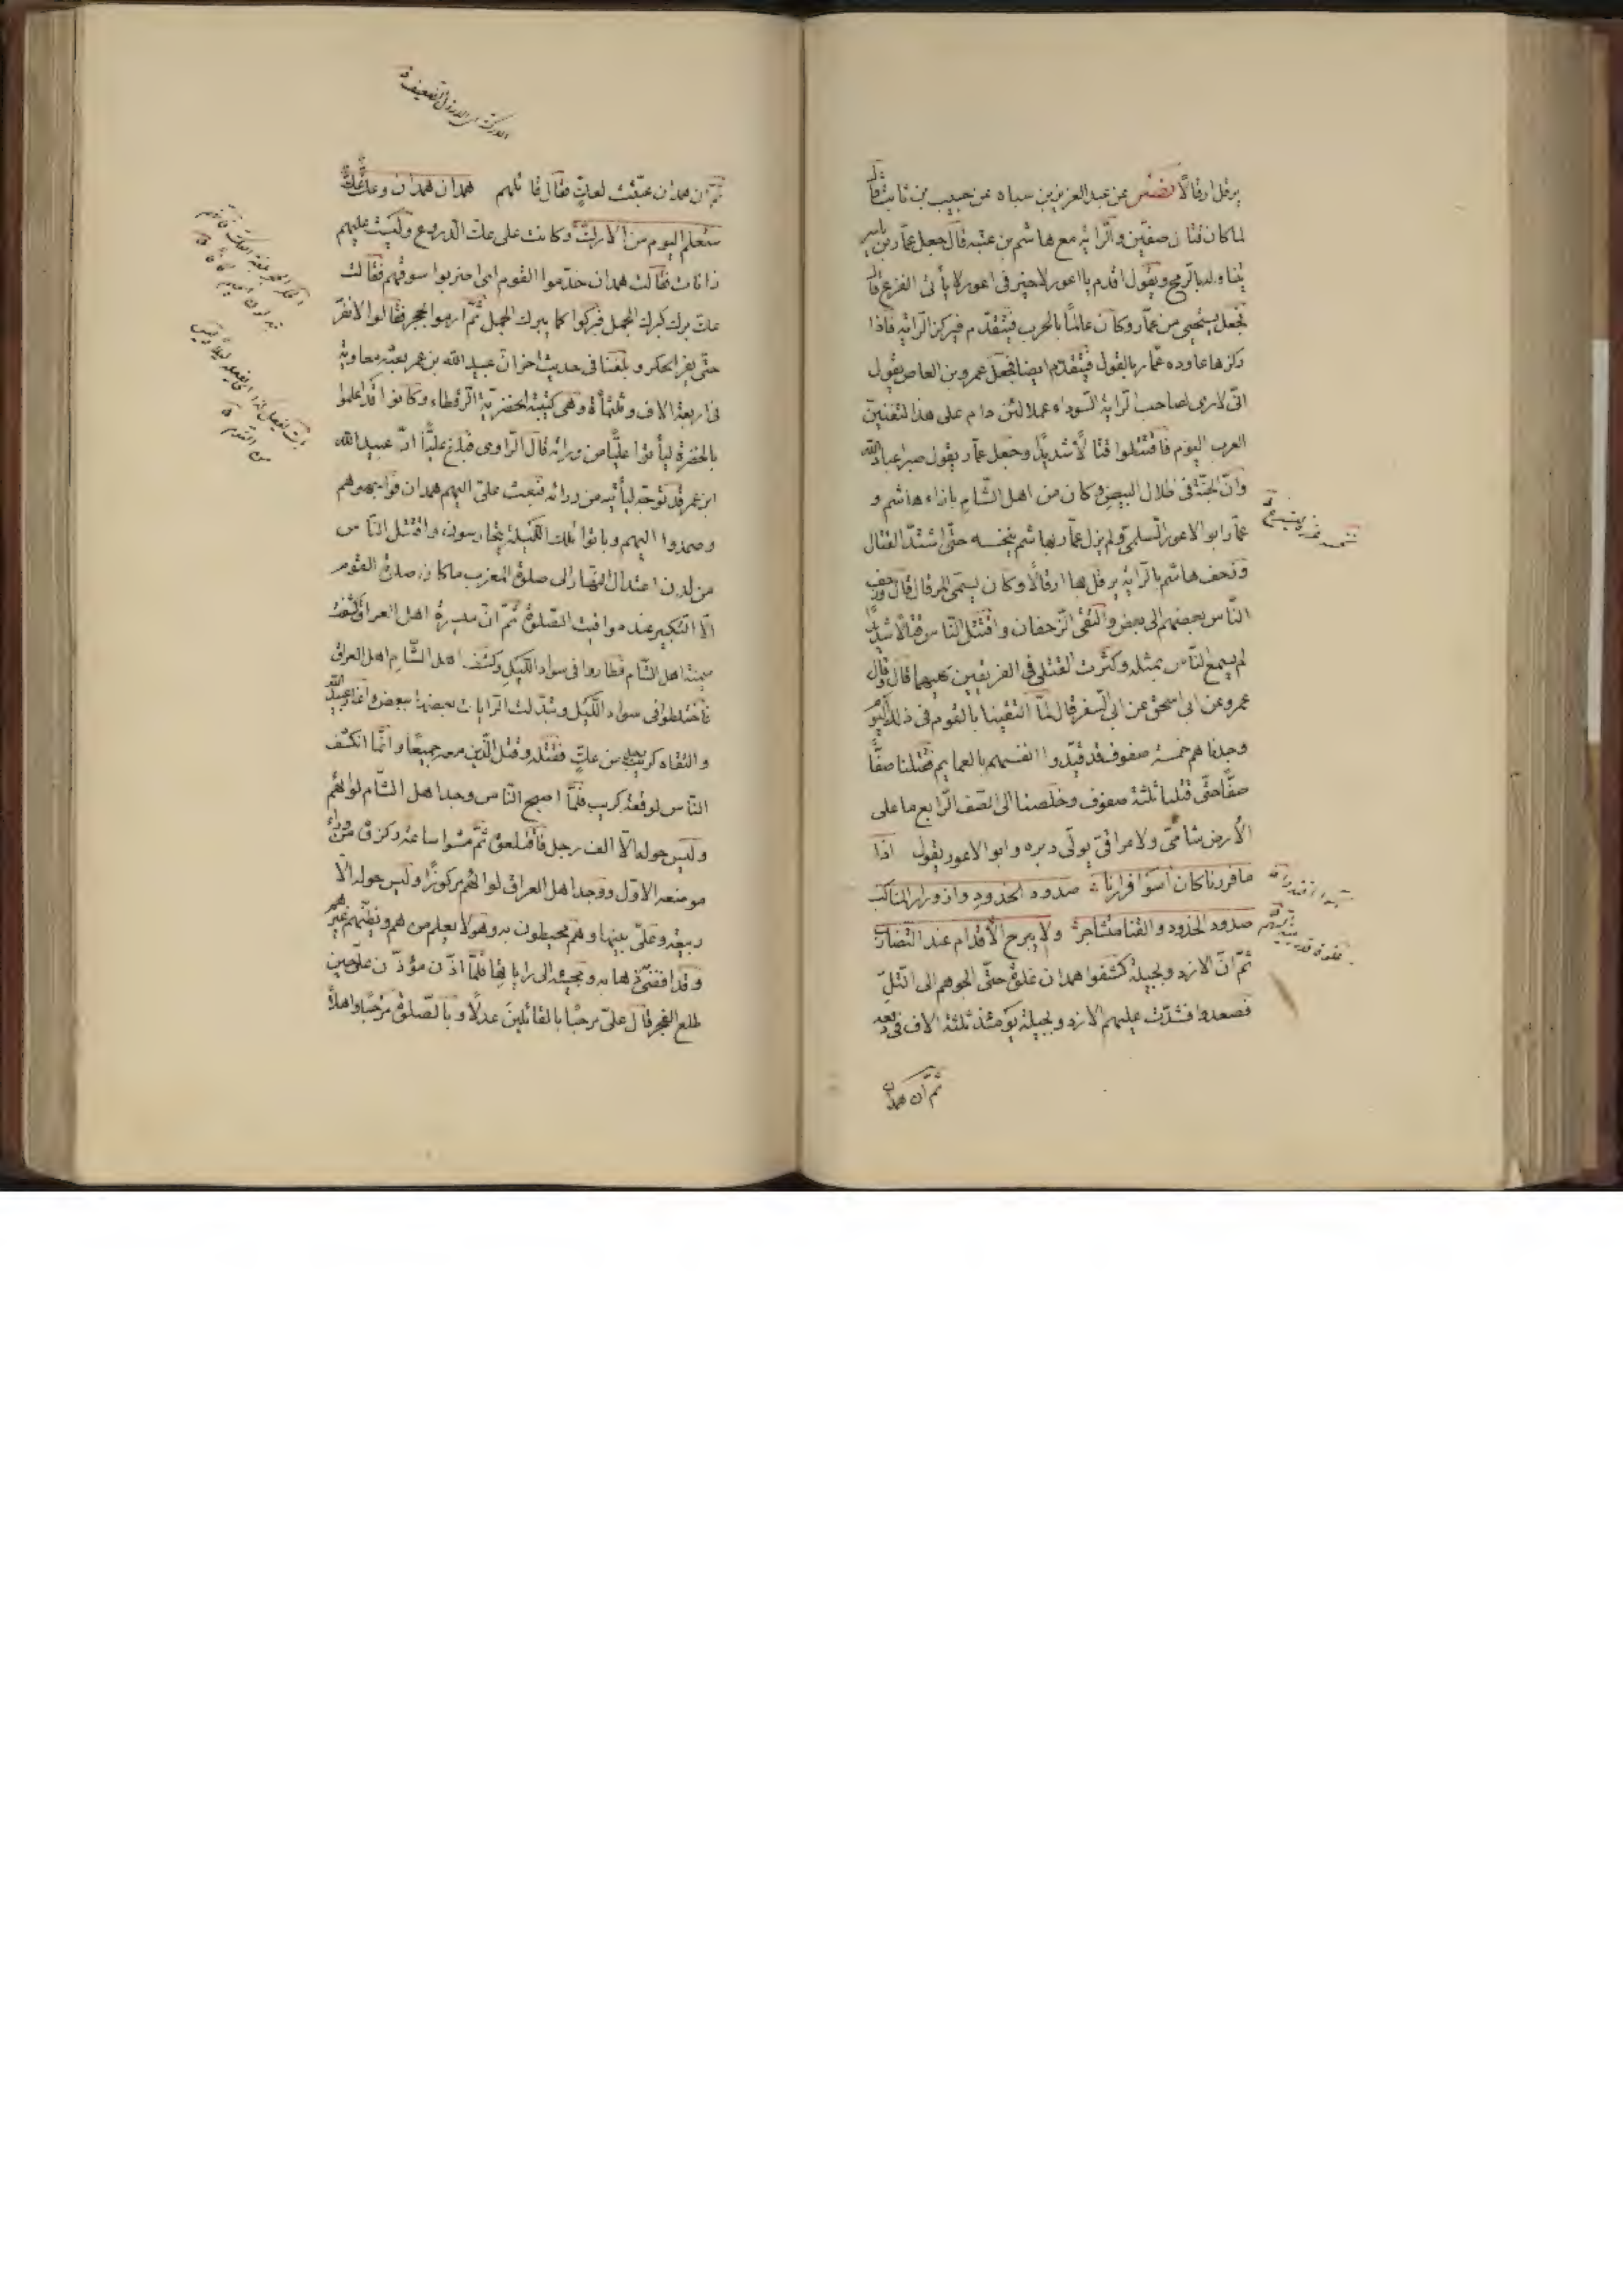 يرقل ارقالًا نصر عن عبد العزيز بن سياه عن حبيب بن ثابت قال
لما كان قتال صفّين والرّاية مع هاشم بن عتبة قال جعل عمّار بن ياسر
يتناوله بالرّمح ويقول اقدم يا اعور لا خير في اعور لا يأتى الفزع قال
فجعل يستحيى من عمّار وكان عالمًا بالحرب فيتقدّم فيركز الرّاية فاذا
ركزها عاوده عمّار بالقول فيتقدّم ايضا فجعل عمرو بن العاص يقول
انّى لارى لصاحب الرّاية السّوداء عملا لئن دام على هذا لتفنينّ
العرب اليوم فاقتتلوا قتالًا شديدًا وجعل عمّار يقول صبرا عباد الله
وانّ الجنّة فى ظلال البيض وكان من اهل الشّام بازاء هاشم و
عمّار ابو الاعور السّلمى ولم يزل عمّار بهاشم ينخسه حتّى اشتدّ القتال
وزحف هاشم بالرّاية يرقل بها ارقالًا وكان يسمّى المرقال قال وزحف
النّاس بعضهم الى بعض والتقى الزّحفان واقتتل النّاس قتالًا شديدًا
لم يسمع النّاس بمثله وكثرت القتلى فى الفريقين كليهما قال وقال
عمرو عن ابى اسحق عن ابى السّفر قال لمّا التقينا بالقوم فى ذلك اليوم
وجدناهم خمسة صفوف قد قيّدوا انفسهم بالعمايم فقتلنا صفًّا
صفًّا حتّى قتلنا ثلثة صفوف وخلصنا الى الصّف الرّابع ما على
الأرض شامىّ ولا عراقىّ يولّى دبره وابو الاعور يقول اذا
ما فررنا كان أسوا فرارنا صدود الخدود وازورار المناكب
صدود الخدود والقنا متشاجرة ولا يبرح الأقدام عند التّضارب
ثمّ انّ الازد وبجيلة كشفوا همدان غلوة حتّى الجوهم الى التّلّ
فصعدوا فشدّت عليهم الازد وبجيلة يومئذ ثلثة الاف فى
ثمّ انّ همدان
ثمّ انّ همدان عبّئت لعكّ فقال قائلهم همدان همدان وعكّ عكّ
ستعلم اليوم من الارك وكانت على عكّ الدّروع وليست عليهم
رانات فقالت همدان خدّموا القوم اى اضربوا سوقهم فقالت
عكّ برك كبرك الجمل فبركوا كما يبرك الجمل ثمّ ارموا بحجر فقالوا لا نفرّ
حتّى يفرّ الحكر وبلغنا فى حديث اخر انّ عبيد الله بن عمر بعثه معاوية
فى اربعة الاف وثلثمأة وهى كتيبة الخضريّة الرّقطاء وكانوا قد اعلموا
بالخضرة ليأتوا عليًّا من ورائه قال الرّاوى فبلغ عليًّا انّ عبيد الله
ابن عمر قد توجّه ليأتيه من ورائه فبعث علىّ اليهم همدان فواجهوهم
وصمدوا اليهم وباتوا تلك اللّيلة يتحارسون، واقتتل النّاس
من لدن اعتدال النّهار الى صلوة المغرب ما كان صلوة القوم
الّا التّكبير عند مواقيت الصّلوة ثمّ انّ ميسرة اهل العراق كشفت
ميمنة اهل الشّام فطاروا فى سواد اللّيل وكشف اهل الشّام اهل العراق
فاختلطوا فى سواد اللّيل وتبدّلت الرّايات بعضها ببعض
والتقاه كريب رجل من عكّ فقتله وقتل الّذين معه جميعًا وانّما انكشف
النّاس لوقعة كريب فلمّا اصبح النّاس وجد اهل الشّام لوائهم
وليس حوله الّا الف رجل فاقتلعوه ثمّ مشوا ساعة وركزوه من وراء
موضعه الاوّل ووجد اهل العراق لوائهم مركوزًا وليس حوله الّا
ربيعة وعلىّ بينها وهم محيطون به وهو لا يعلم من هم ويظنّهم غيرهم
فلمّا اذّن مؤذّن علىّ حين
طلع الفجر قال علىّ مرحبًا بالقائلين عدلًا وبالصّلوة مرحبًا واهلًا